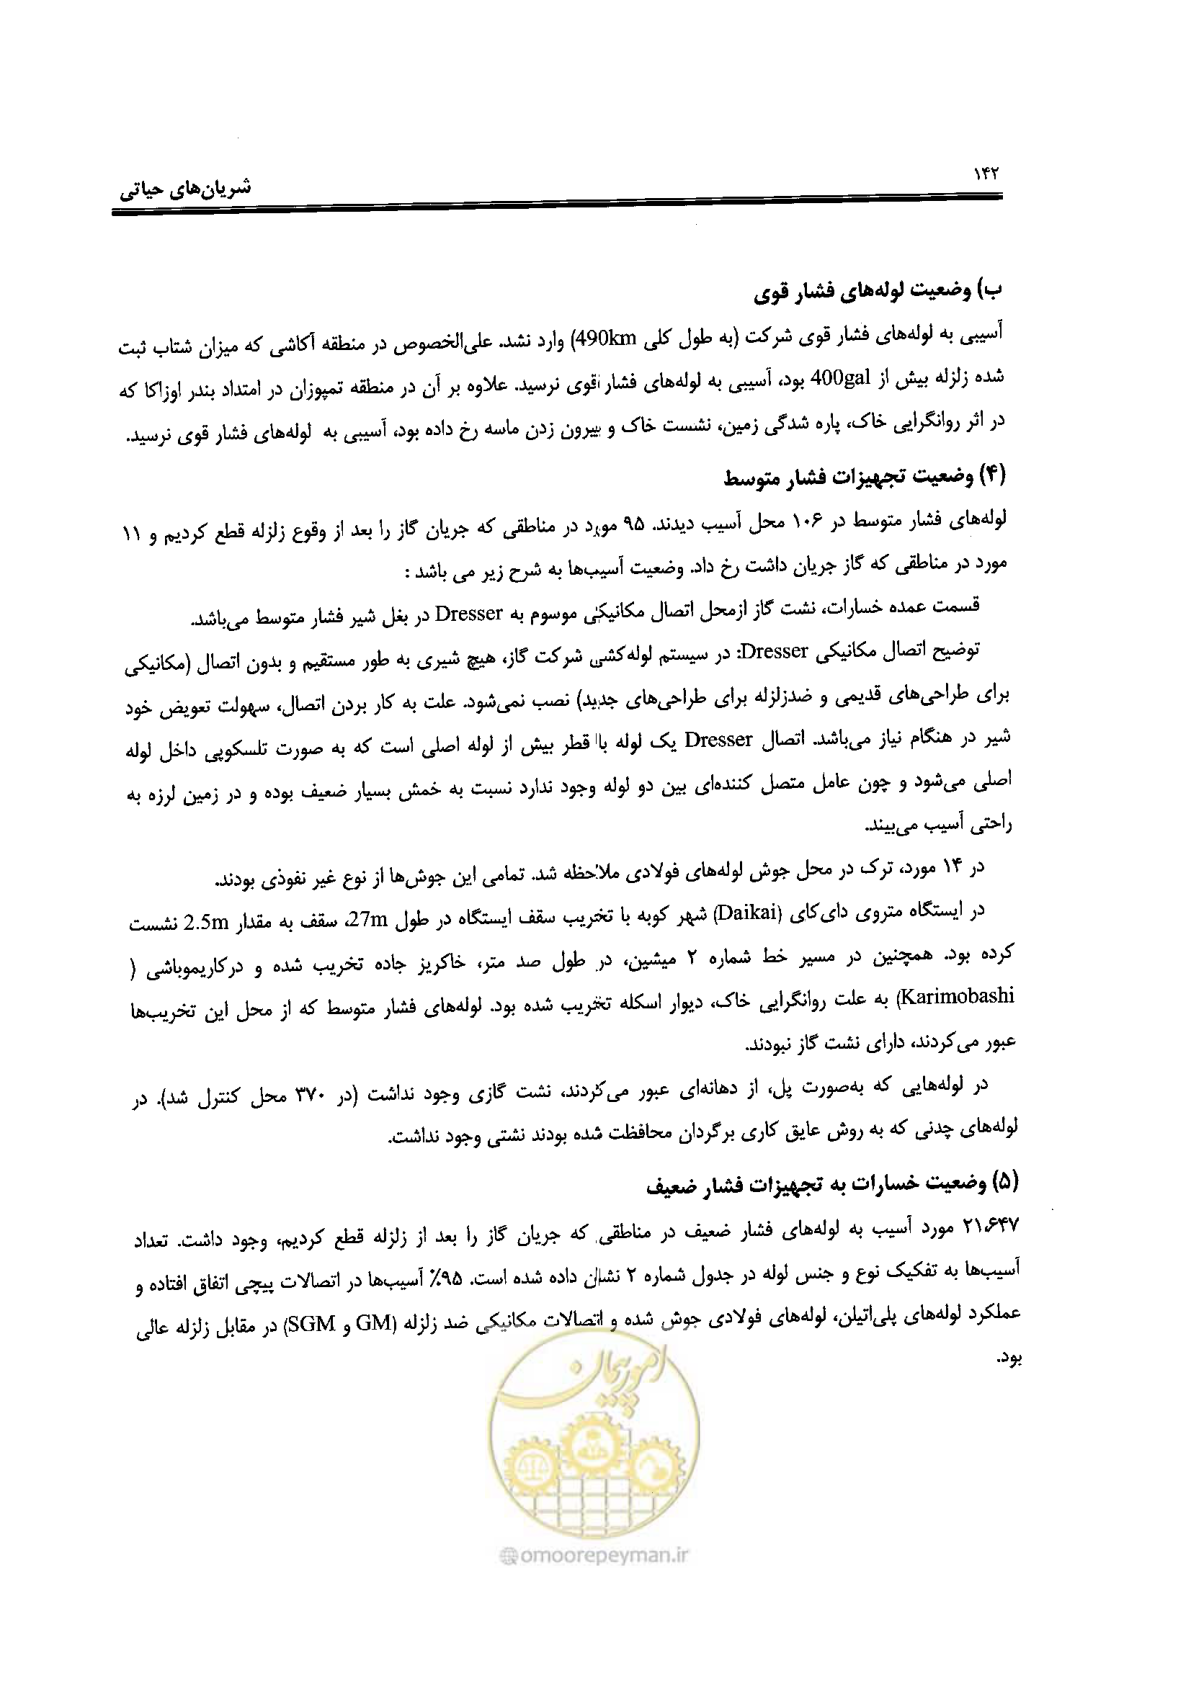 ۱۴۲
شریان‌های حیاتی
ب) وضعیت لوله‌های فشار قوی
آسیبی به لوله‌های فشار قوی شرکت (به طول کلی 490km) وارد نشد. علی‌الخصوص در منطقه آکاشی که میزان شتاب ثبت
شده زلزله بیش از 400gal بود، آسیبی به لوله‌های فشار قوی نرسید. علاوه بر آن در منطقه تمپوزان در امتداد بندر اوزاکا که
در اثر روانگرایی خاک، پاره شدگی زمین، نشست خاک و بیرون زدن ماسه رخ داده بود، آسیبی به لوله‌های فشار قوی نرسید.
(۴) وضعیت تجهیزات فشار متوسط
لوله‌های فشار متوسط در ۱۰۶ محل آسیب دیدند. ۹۵ مورد در مناطقی که جریان گاز را بعد از وقوع زلزله قطع کردیم و ۱۱
مورد در مناطقی که گاز جریان داشت رخ داد. وضعیت آسیب‌ها به شرح زیر می باشد :
قسمت عمده خسارات، نشت گاز ازمحل اتصال مکانیکی موسوم به Dresser در بغل شیر فشار متوسط می‌باشد.
توضیح اتصال مکانیکی Dresser: در سیستم لوله‌کشی شرکت گاز، هیچ شیری به طور مستقیم و بدون اتصال (مکانیکی
برای طراحی‌های قدیمی و ضدزلزله برای طراحی‌های جدید) نصب نمی‌شود. علت به کار بردن اتصال، سهولت تعویض خود
شیر در هنگام نیاز می‌باشد. اتصال Dresser یک لوله با قطر بیش از لوله اصلی است که به صورت تلسکوپی داخل لوله
اصلی می‌شود و چون عامل متصل کننده‌ای بین دو لوله وجود ندارد نسبت به خمش بسیار ضعیف بوده و در زمین لرزه به
راحتی آسیب می‌بیند.
در ۱۴ مورد، ترک در محل جوش لوله‌های فولادی ملاحظه شد. تمامی این جوش‌ها از نوع غیر نفوذی بودند.
در ایستگاه متروی دای‌کای (Daikai) شهر کوبه با تخریب سقف ایستگاه در طول 27m، سقف به مقدار 2.5m نشست
کرده بود. همچنین در مسیر خط شماره ۲ میشین، در طول صد متر، خاکریز جاده تخریب شده و درکاریموباشی (
Karimobashi) به علت روانگرایی خاک، دیوار اسکله تخریب شده بود. لوله‌های فشار متوسط که از محل این تخریب‌ها
عبور می‌کردند، دارای نشت گاز نبودند.
در لوله‌هایی که به‌صورت پل، از دهانه‌ای عبور می‌کردند، نشت گازی وجود نداشت (در ۳۷۰ محل کنترل شد). در
لوله‌های چدنی که به روش عایق کاری برگردان محافظت شده بودند نشتی وجود نداشت.
(۵) وضعیت خسارات به تجهیزات فشار ضعیف
۲۱،۶۴۷ مورد آسیب به لوله‌های فشار ضعیف در مناطقی که جریان گاز را بعد از زلزله قطع کردیم، وجود داشت. تعداد
آسیب‌ها به تفکیک نوع و جنس لوله در جدول شماره ۲ نشان داده شده است. ۹۵٪ آسیب‌ها در اتصالات پیچی اتفاق افتاده و
عملکرد لوله‌های پلی‌اتیلن، لوله‌های فولادی جوش شده و اتصالات مکانیکی ضد زلزله (GM و SGM) در مقابل زلزله عالی
بود.
امور پیمان
@omoorepeyman.ir